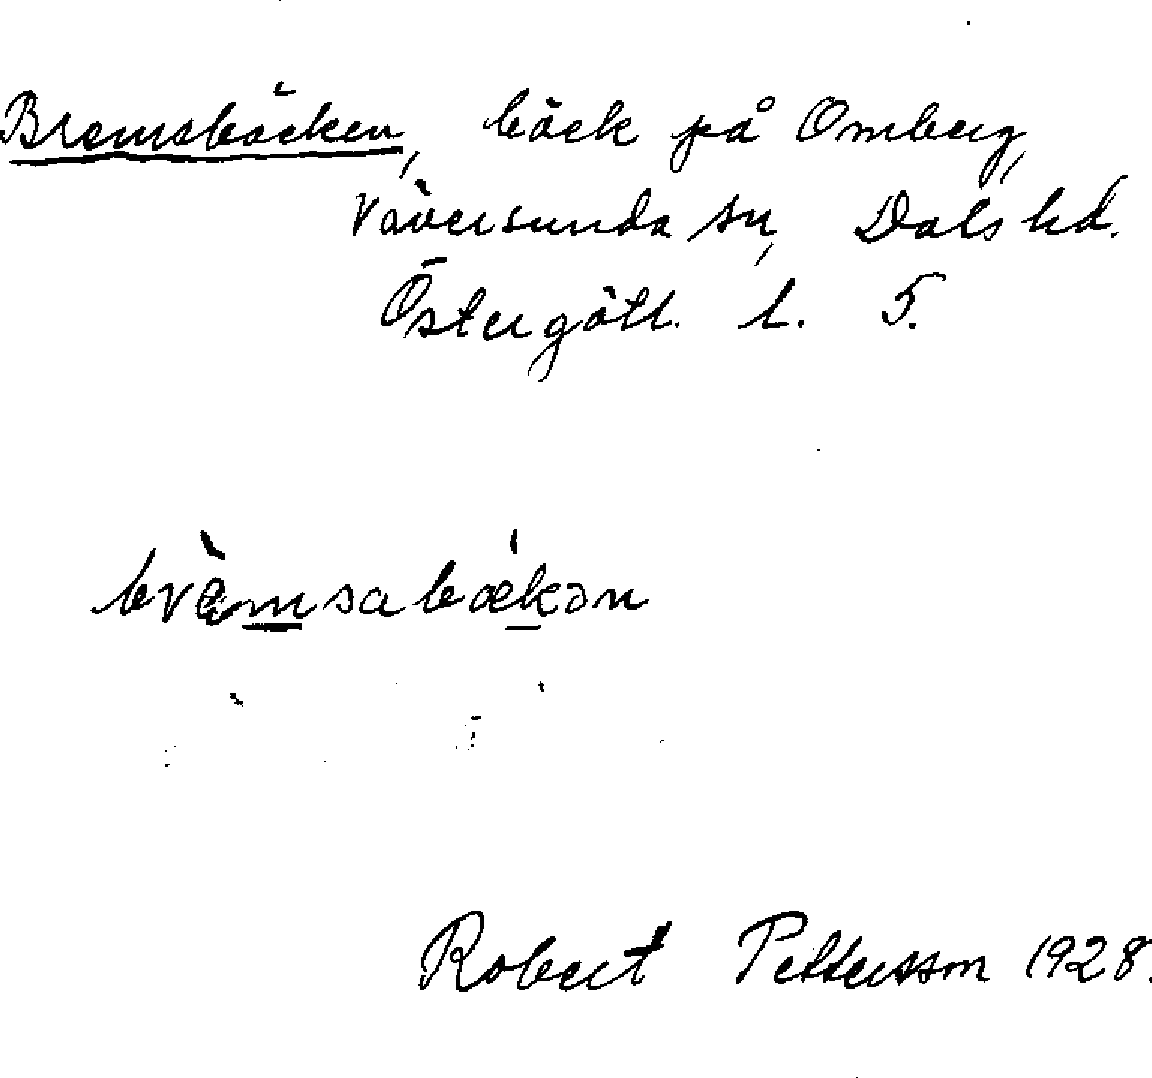 Bremsbäcken, bäck på Omberg,
Väversunda sn, Dals hd.
Östergötl. l. 5.
brèmsabækən
Robert Pettersson 1928.